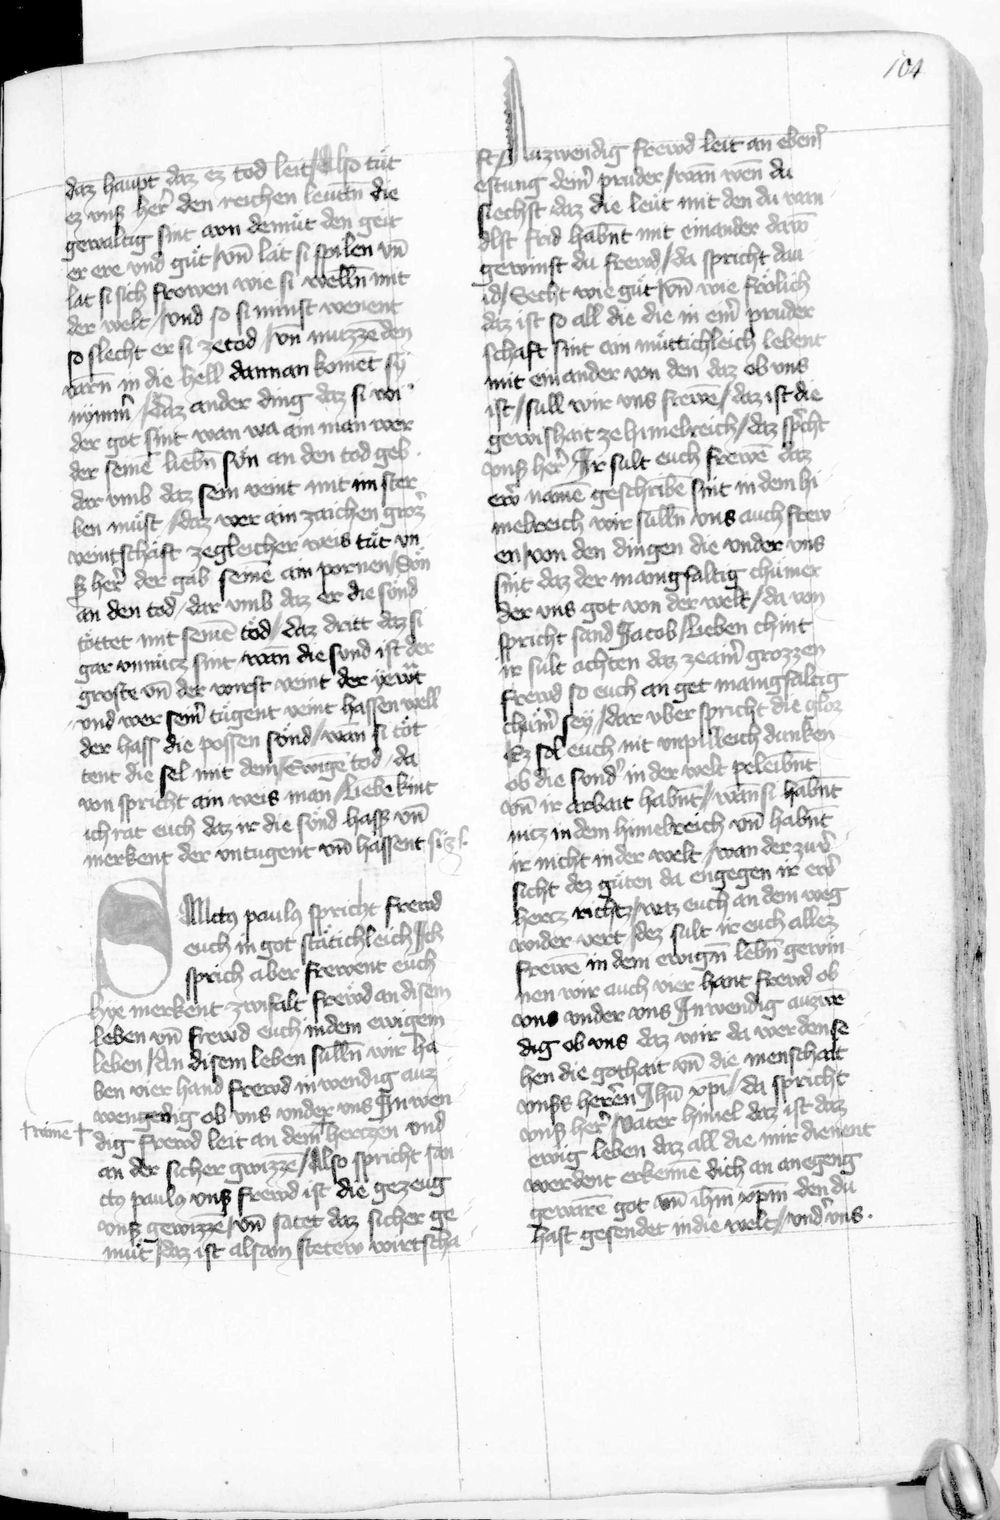 104
daz haupt daz ez tod leit / Also tuͤt
ez vnß her̄ den reichen leuͤten die
gewaltig sint wen demuͤt den geit
er ere vnd guͤt / vn̄ lat si spilen vn̄
lat si sich frowen wie si welln̄ mit
der welt / vnd so si minst wenent
so slecht er si ze tod / vn̄ mutzze den
varn̄ in die hell dannan komet si
nymm̄ / Daz ander ding daz si wi
der got sint wan wa ain man wer
der seinē liebn̄ sun an den tod geb
dar vmb daz sein veint mit im ster
ben muͤst / daz wer ain zaichen groz̄
veintschaft ze gleicher weis tuͤt vn
ß her̄ der gab seinē ain pornen / Sun
an den tod / dar vmb daz er die suͤnd
toͤttet mit seinē tod / daz dritt daz si
gar vnnücz sint wan̄ die sund ist der
groste vn̄ der wirst veint der yewīt
vnd wer sein̄ tugent veint hassen well
der hass die possen suͤnd / wan̄ si toͤt
tent die sel mit dem ewigē tod / da
von spricht ain weis man / Liebe kint
ich rat euch daz ir die suͤnd hasß vn̄
merkent der vntugent vn̄ hassent si ꝛc.
SAnctus paulus spricht frewd
euch in got stätichleich Ich
sprich aber frewent euch
hye merkent zwifalt freẅd an disem
leben vn̄ frewd euch in dem ewigem
leben / An disem leben sulln̄ wir ha
ben vier hand frewd inwendig auz
wengedig ob vns vnder vns Inwen
dig frewd leit an dem hertzen vnd
† rainē †
an der sicher gwizzē / Also spricht san
ctus paulus vnß frewd ist die gezeug
vnß gewizze / vn̄ satet daz sicher ge
muͤt / daz ist alsam stetew wirtscha
ft / Auzwendig frewd leit an eben̄
estung dem̄ pruder / wan̄ wen̄ du
siechst daz die leut mit den du wan
dlst frid habnt mit einander daw̄
gewinst du frewd / da spricht dau
id / Secht wie guͤt vn̄ wie froͤlich
daz ist so all die die in ein̄ pruder
schaft sint ain muͤttichleich lebent
mit einander von den daz ob vns
ist / sull wir vns frewē / daz ist die
gewishait ze himelreich / daz sp̄cht
vnß her̄ Ir sult euch frewē daz
ew̄ namē geschribē sint in dem hi
melreich wir sulln̄ vns auch frew
en / von den dingen die vnder vns
sint daz der manigfaltig chümer
der vns got von der welt / da von
spricht sand Jacob / Lieben chint
ir sult achten daz ze ain̄ grozzen
frewd so euch an get manigfaltig
chüm̄ sey / dar vber spricht die gloz
Ez sol euch nit vnpilleich dunken
ob die sund̄ in der welt peleibnt
vn̄ ir arbait habnt / wan̄ si habnt
nicz in dem himelreich vn̄ habnt
ir nicht in der welt / wan der zuv̄
sicht dez guͤten da engegen ir ew̄
hertz richtz / waz euch an dem weg
wider vert / dez sult ir euch allez
frewē in dem ewign̄ lebn̄ gewin
nen wir auch vier hant frewd ob
vns vnder vns Inwendig auzwē
dig ob vns daz wir da werden se
hen die gothait vn̄ die menschait
vnßs herēn Jhū xpi / da spricht
vnß her̄ Vater himel daz ist daz
ewig leben daz all die mir dienent
werdent erkenne dich an anegeng
gewarē got vn̄ ihm̄ xpm̄ den du
hast gesendet in die welt / vnd̄ vns.